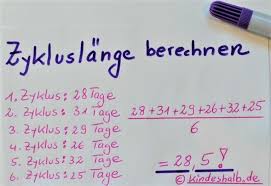 Zykluslänge berechnen
1. Zyklus: 28 Tage
2. Zyklus: 31 Tage
3. Zyklus: 29 Tage
4. Zyklus: 26 Tage
5. Zyklus: 32 Tage
6. Zyklus: 25 Tage
28+31+29+26+32+25
6
= 28,5!
© kindeshalb.de